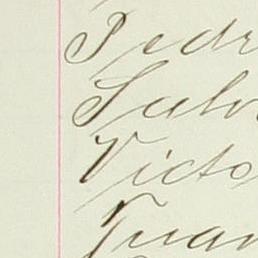 Pedr
Salv
Victo
Juan